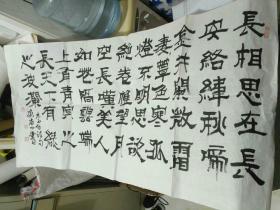 長相思在長
安絡緯秋啼
金井闌微霜
凄簟色寒孤
燈不明思欲
絕卷帷望月
空長嘆美人
如花隔雲端
上有青冥之
長天下有綠
水之波瀾